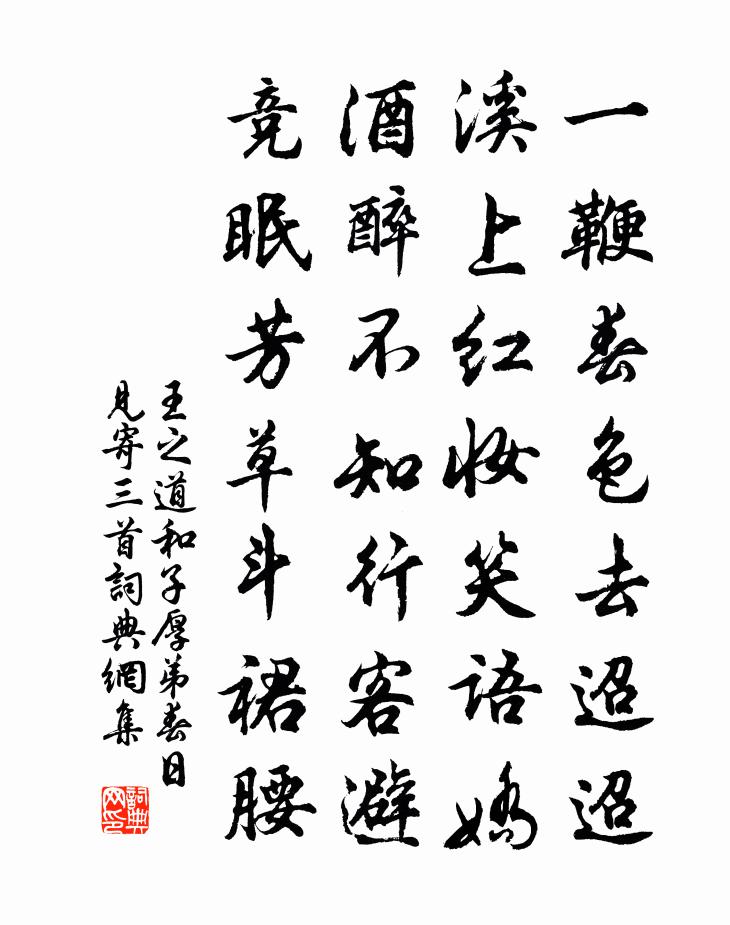 一鞭春色去迢迢
溪上红妆笑语娇
酒醉不知行客避
竞眠芳草斗裙腰
王之道和子厚弟春日
见寄三首詞典網集
詞典
网印